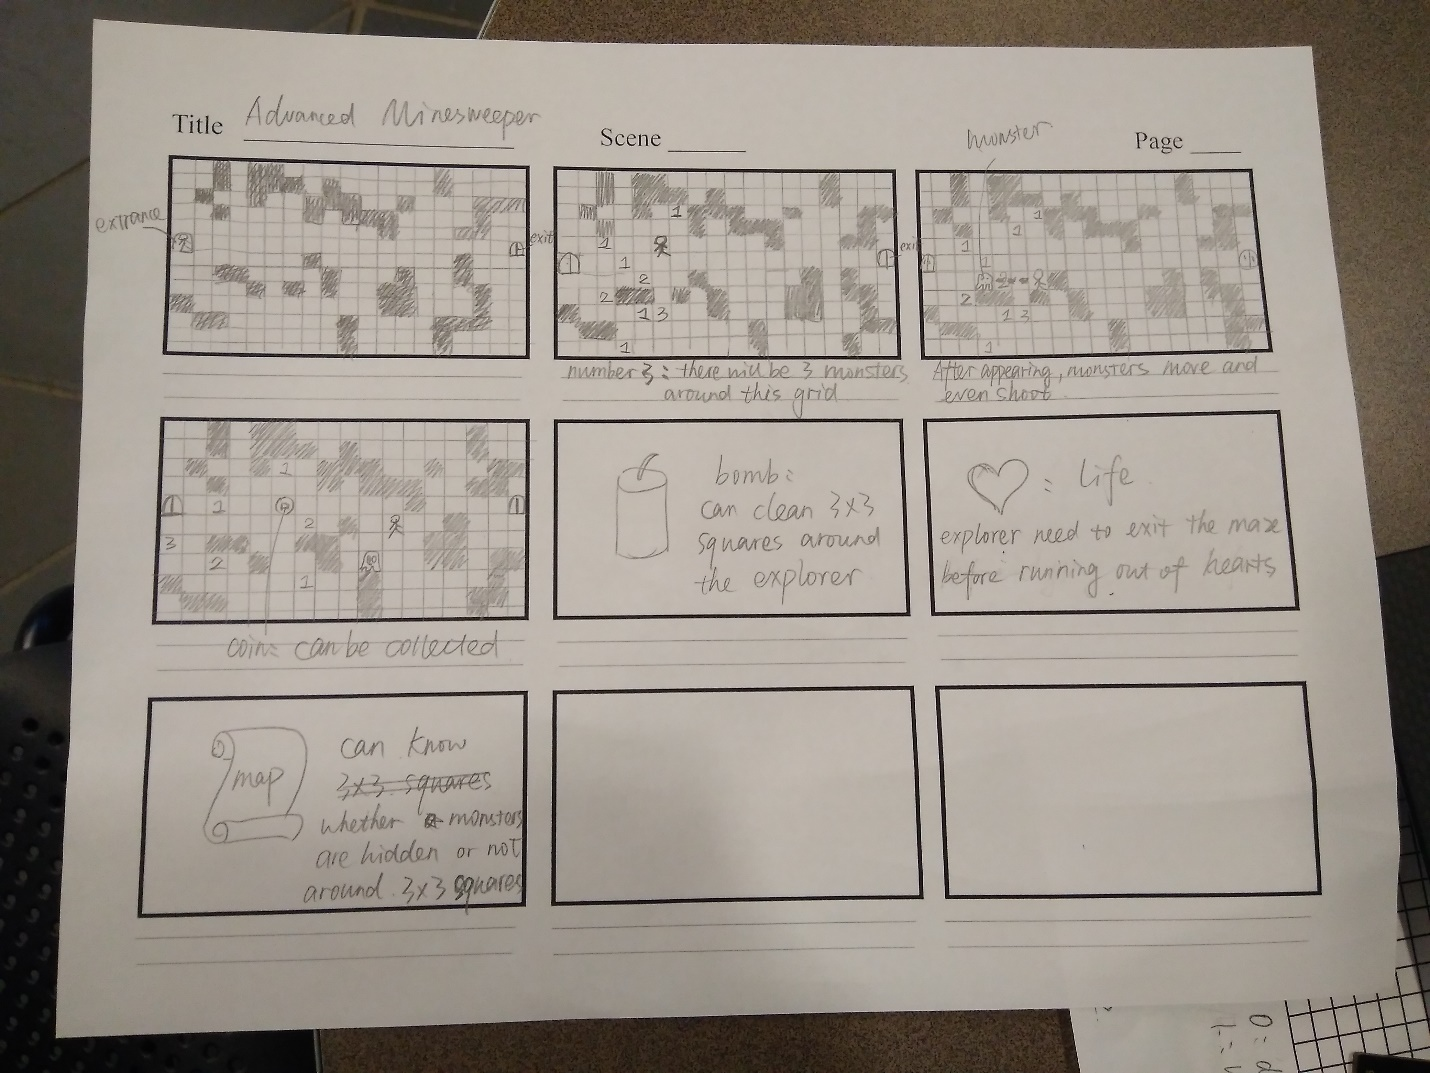 Title Advanced Minesweeper
Scene
monster
Page
extrance
exit
1
1
1
2
2
1 3
1
number 3: there will be 3 monsters
around this grid
exit
1
1
1
1
2
1 3
1
After appearing, monsters move and
even shoot.
1
1
2
3
2
1
coin: can be collected
bomb:
can clean 3x3
squares around
the explorer
: life
explorer need to exit the maze
before running out of hearts
map
can know
3x3 squares
whether monsters
are hidden or not
around 3x3 squares